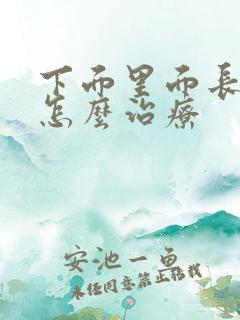 下而里而長
怎麼治療
安池一魚
未经同意禁止转载